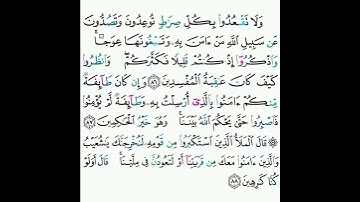 وَلَا تَقْعُدُوا۟ بِكُلِّ صِرَٰطٍ تُوعِدُونَ وَتَصُدُّونَ
عَن سَبِيلِ ٱللَّهِ مَنْ ءَامَنَ بِهِۦ وَتَبْغُونَهَا عِوَجًا ۚ
وَٱذْكُرُوٓا۟ إِذْ كُنتُمْ قَلِيلًا فَكَثَّرَكُمْ ۖ وَٱنظُرُوا۟
كَيْفَ كَانَ عَٰقِبَةُ ٱلْمُفْسِدِينَ ٨٦ وَإِن كَانَ طَآئِفَةٌ
مِّنكُمْ ءَامَنُوا۟ بِٱلَّذِىٓ أُرْسِلْتُ بِهِۦ وَطَآئِفَةٌ لَّمْ يُؤْمِنُوا۟
فَٱصْبِرُوا۟ حَتَّىٰ يَحْكُمَ ٱللَّهُ بَيْنَنَا ۚ وَهُوَ خَيْرُ ٱلْحَٰكِمِينَ ٨٧
۞ قَالَ ٱلْمَلَأُ ٱلَّذِينَ ٱسْتَكْبَرُوا۟ مِن قَوْمِهِۦ لَنُخْرِجَنَّكَ يَٰشُعَيْبُ
وَٱلَّذِينَ ءَامَنُوا۟ مَعَكَ مِن قَرْيَتِنَآ أَوْ لَتَعُودُنَّ فِى مِلَّتِنَا ۚ قَالَ أَوَلَوْ
كُنَّا كَٰرِهِينَ ٨٨